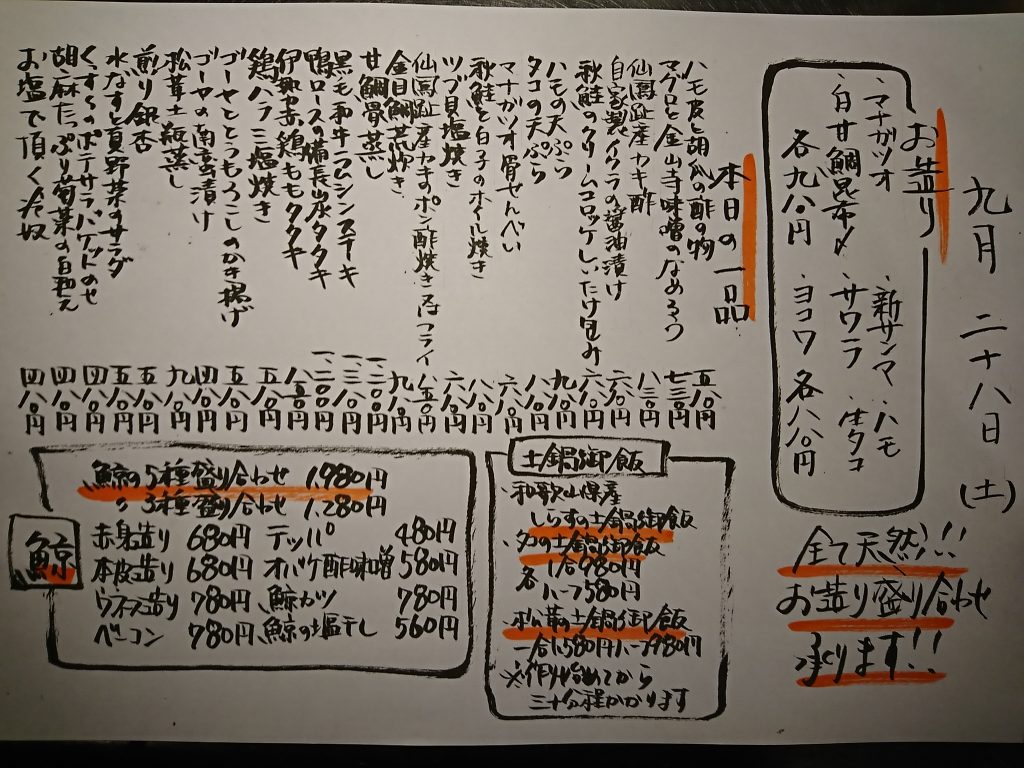 九月二十八日(土)
お造り
・マナガツオ ・新サンマ ・ハモ
・白甘鯛昆布〆 ・サワラ ・生タコ
各九八〇円 ヨコワ 各八八〇円
全て天然!!!
お造り盛り合わせ
承ります!!
本日の一品
ハモ皮と胡瓜の酢の物 五八〇円
マグロと金山寺味噌のなめろう 七三〇円
仙鳳趾産カキ酢 八三〇円
自家製イクラの醤油漬け 六八〇円
秋鮭のクリームコロッケしいたけ包み 六八〇円
ハモの天ぷら 九八〇円
タコの天ぷら 八八〇円
マナガツオ骨せんべい 六八〇円
秋鮭と白子のホイル焼き 八八〇円
ツブ貝塩焼き 六八〇円
仙鳳趾産カキのポン酢焼き又はフライ 八五〇円
金目鯛荒炊き 九八〇円
甘鯛骨蒸し 一、二〇〇円
黒毛和牛ラムシンステーキ 一、三八〇円
鴨ロースの備長炭タタキ 一、二〇〇円
伊勢赤鶏ももタタキ 八五〇円
鶏ハラミ塩焼き 五八〇円
ゴーヤととうもろこしのかき揚げ 五八〇円
ゴーヤの南蛮漬け 四八〇円
松茸土瓶蒸し 九八〇円
煎り銀杏 五八〇円
水なすと夏野菜のサラダ 五八〇円
ポテサラバケットのせ 四八〇円
胡麻たっぷり菊菜の白和え 四八〇円
お塩で頂く冷奴 四八〇円
土鍋御飯
・和歌山県産
しらすの土鍋御飯
・タコの土鍋御飯
1合980円
各
ハーフ580円
・松茸の土鍋御飯
一合1,580円ハーフ980円
※作り始めてから
三十分程かかります
鯨
鯨の5種盛り合わせ 1,980円
〃 3種盛り合わせ 1,280円
赤身造り 680円 テッパ 480円
本皮造り 680円 オバケ酢味噌 580円
ウネス造り 780円 鯨カツ 780円
ベーコン 780円 鯨の塩干し 560円